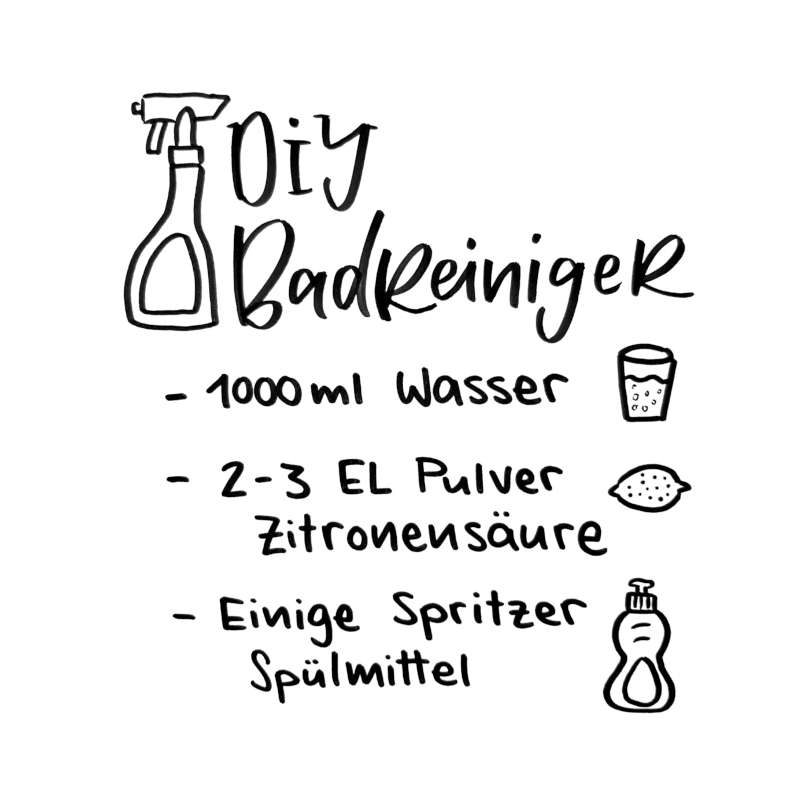 DiY
BadReiniger
- 1000 ml Wasser
- 2-3 EL Pulver
Zitronensäure
- Einige Spritzer
Spülmittel